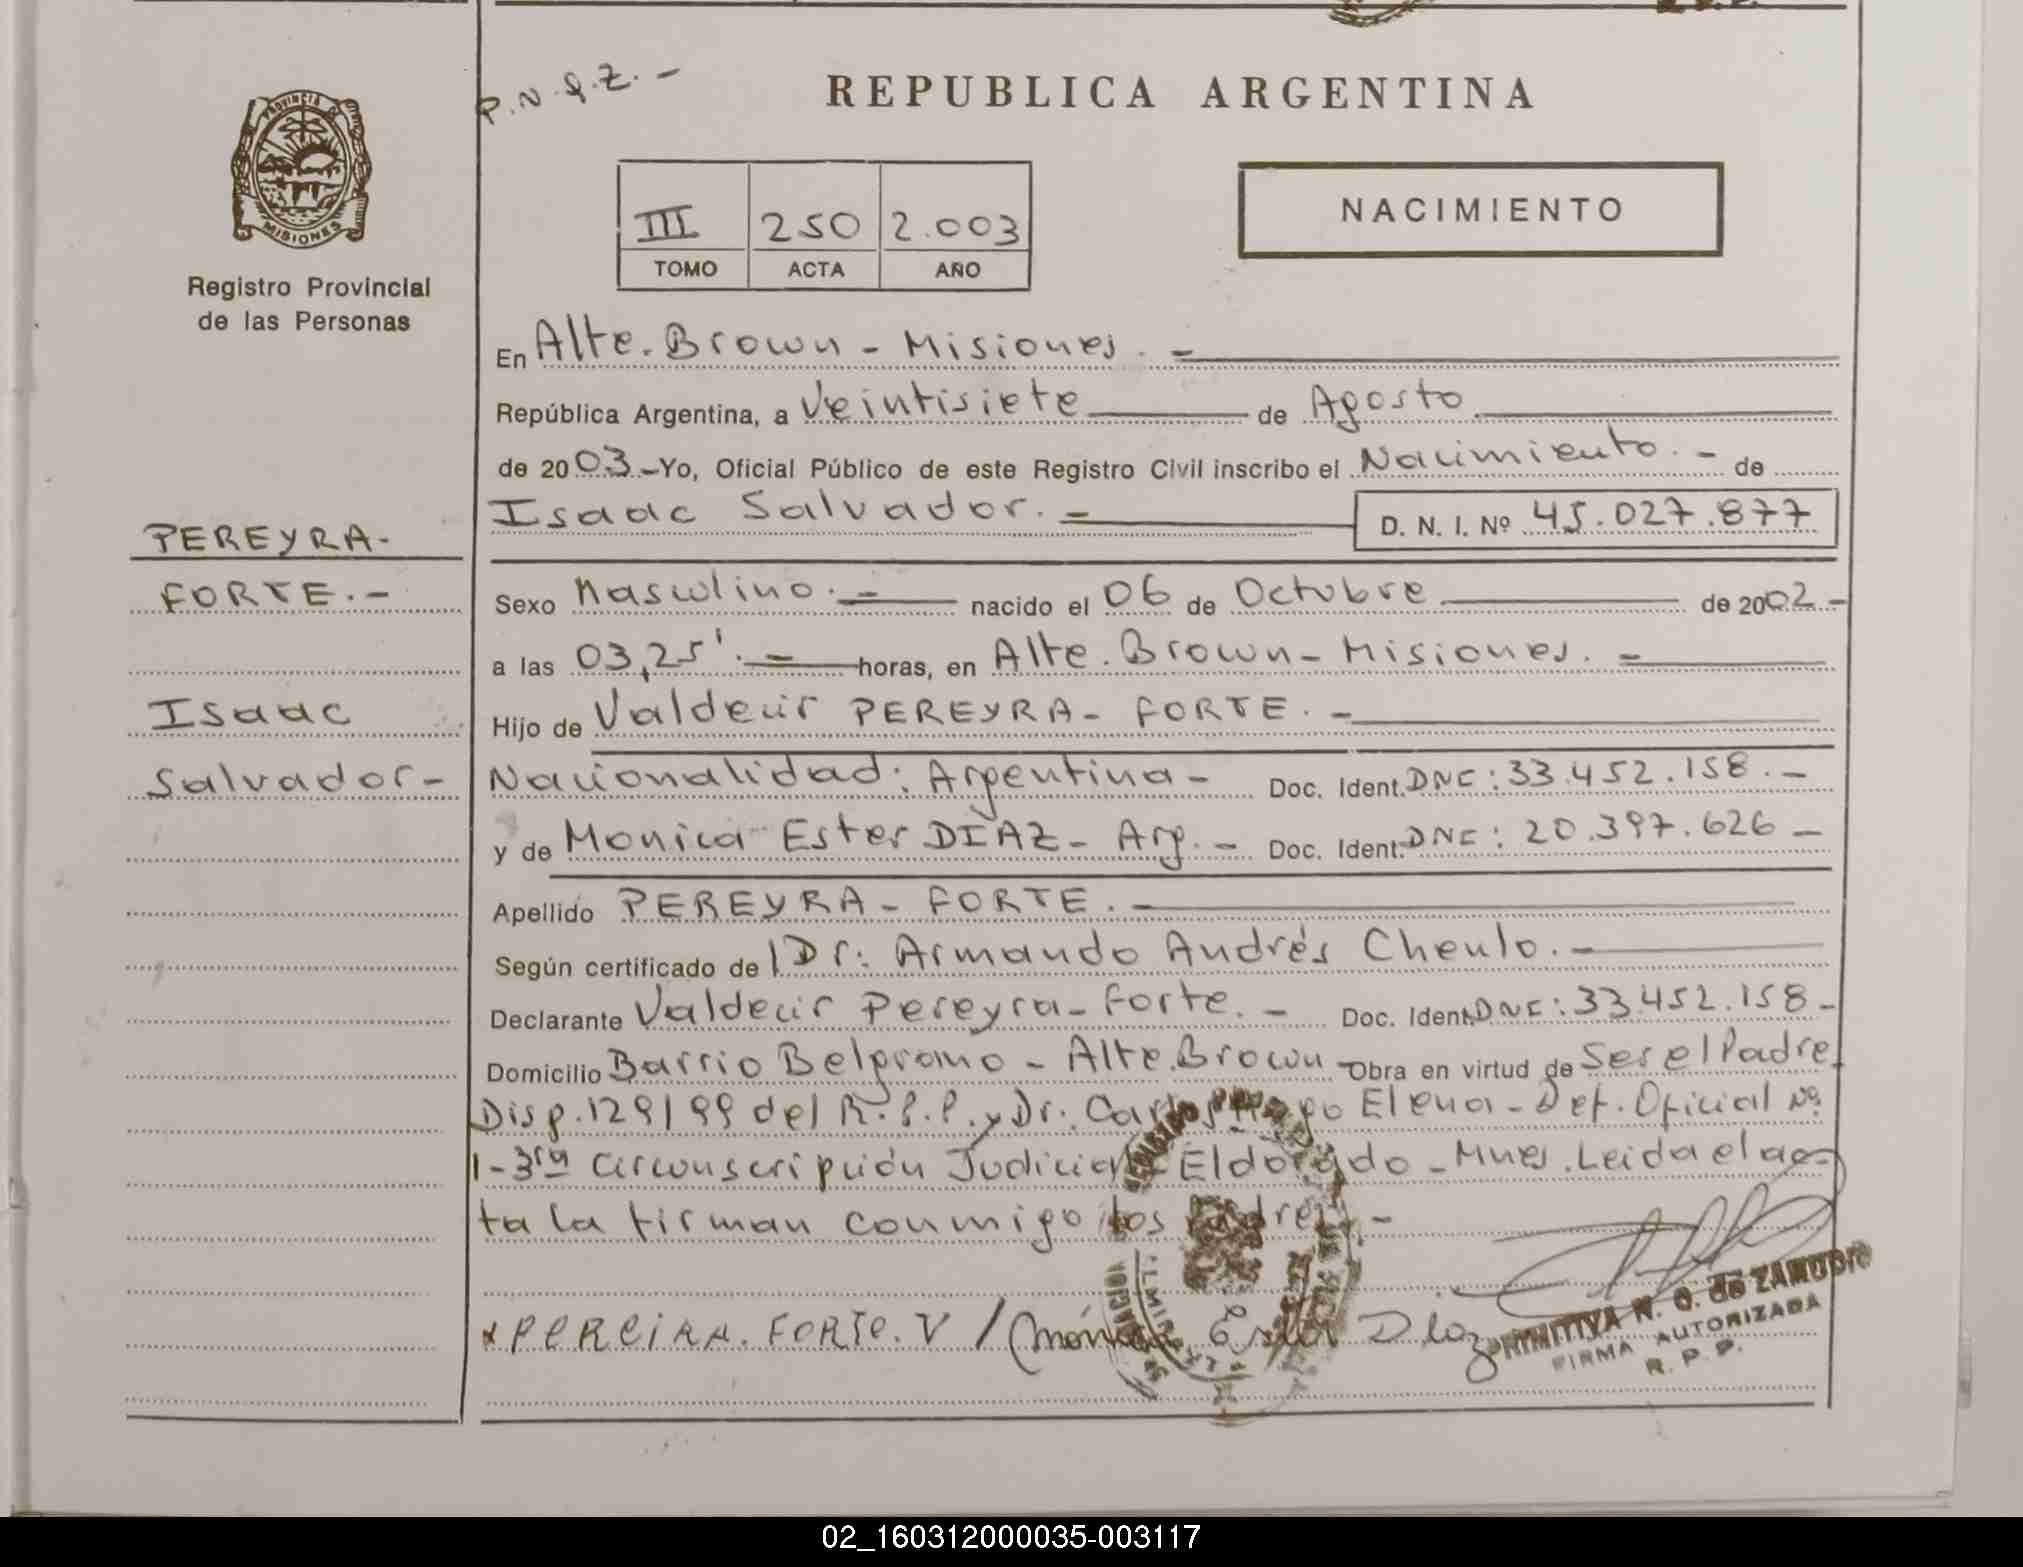 P.N.Q.Z. -
REPUBLICA ARGENTINA
PROVINCIA DE
MISIONES
Registro Provincial
de las Personas
III 250 2.003
TOMO ACTA AÑO
NACIMIENTO
En Alte. Brown - Misiones. -
República Argentina, a Veintisiete de Agosto
de 2003.- Yo, Oficial Público de este Registro Civil inscribo el Nacimiento. - de
Isaac Salvador. - D. N. I. Nº 45.027.877
PEREYRA-
FORTE. -
Isaac
Salvador -
Sexo Masculino. - nacido el 06 de Octubre de 2002 -
a las 03,25'. - horas, en Alte. Brown - Misiones. -
Hijo de Valdecir PEREYRA - FORTE. -
Nacionalidad: Argentina - Doc. Ident. DNI: 33.452.158. -
y de Monica Ester DIAZ - Arg. - Doc. Ident. DNI: 20.397.626 -
Apellido PEREYRA - FORTE. -
Según certificado de Dr: Armando Andrés Cheulo. -
Declarante Valdecir Pereyra - Forte. - Doc. Ident. DNI: 33.452.158 -
Domicilio Barrio Belgrano - Alte. Brown - Obra en virtud de Ser el Padre
Disp. 129/99 del R.P.P. y Dr: Carlos Hugo Elena - Def. Oficial Nº
1 - 3ra Circunscripción Judicial - Eldorado - Mnes. Leida el ac-
ta la firman conmigo los Padres. -
x PEREIRA. FORTE. V / Mónica Ester Diaz
PRIMITIVA N. O. de ZAMUDIO
FIRMA AUTORIZADA
R. P. P.
02_160312000035-003117